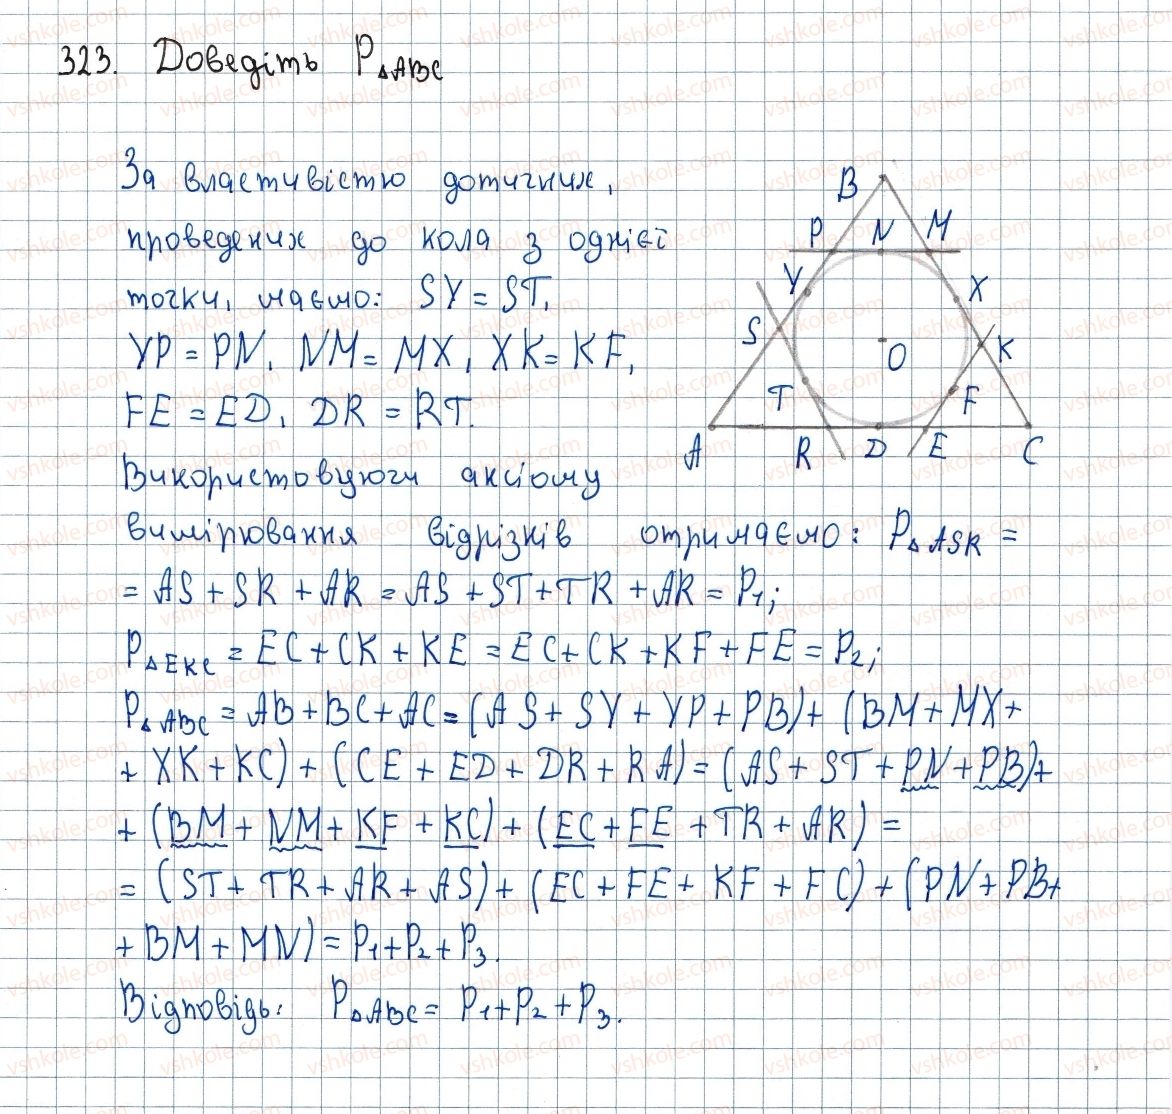 323. Доведіть P△ABC
За властивістю дотичних,
проведених до кола з однієї
точки, маємо: SY = ST,
YP = PN, NM = MX, XK = KF,
FE = ED, DR = RT.
B
P N M
Y X
S K
O
T F
A R D E C
Використовуючи аксіому
вимірювання відрізків отримаємо: P△ASR =
= AS + SR + AR = AS + ST + TR + AR = P₁;
P△EKC = EC + CK + KE = EC + CK + KF + FE = P₂;
P△ABC = AB + BC + AC = (AS + SY + YP + PB) + (BM + MX +
+ XK + KC) + (CE + ED + DR + RA) = (AS + ST + PN + PB) +
+ (BM + NM + KF + KC) + (EC + FE + TR + AR) =
= (ST + TR + AR + AS) + (EC + FE + KF + FC) + (PN + PB +
+ BM + MN) = P₁ + P₂ + P₃.
Відповідь: P△ABC = P₁ + P₂ + P₃.
vshkole.com